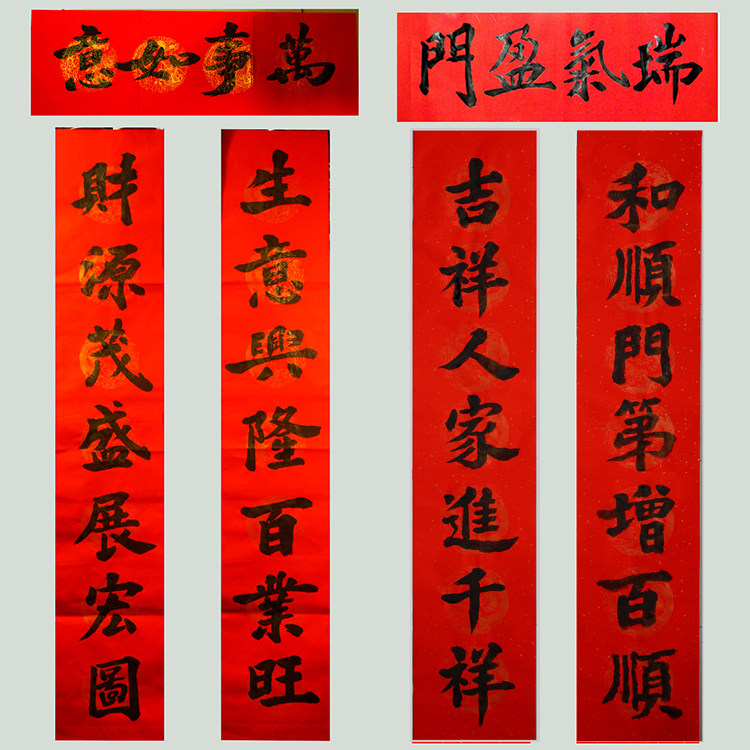 瑞氣盈門
和順門第增百順
吉祥人家進千祥
萬事如意
生意興隆百業旺
財源茂盛展宏圖